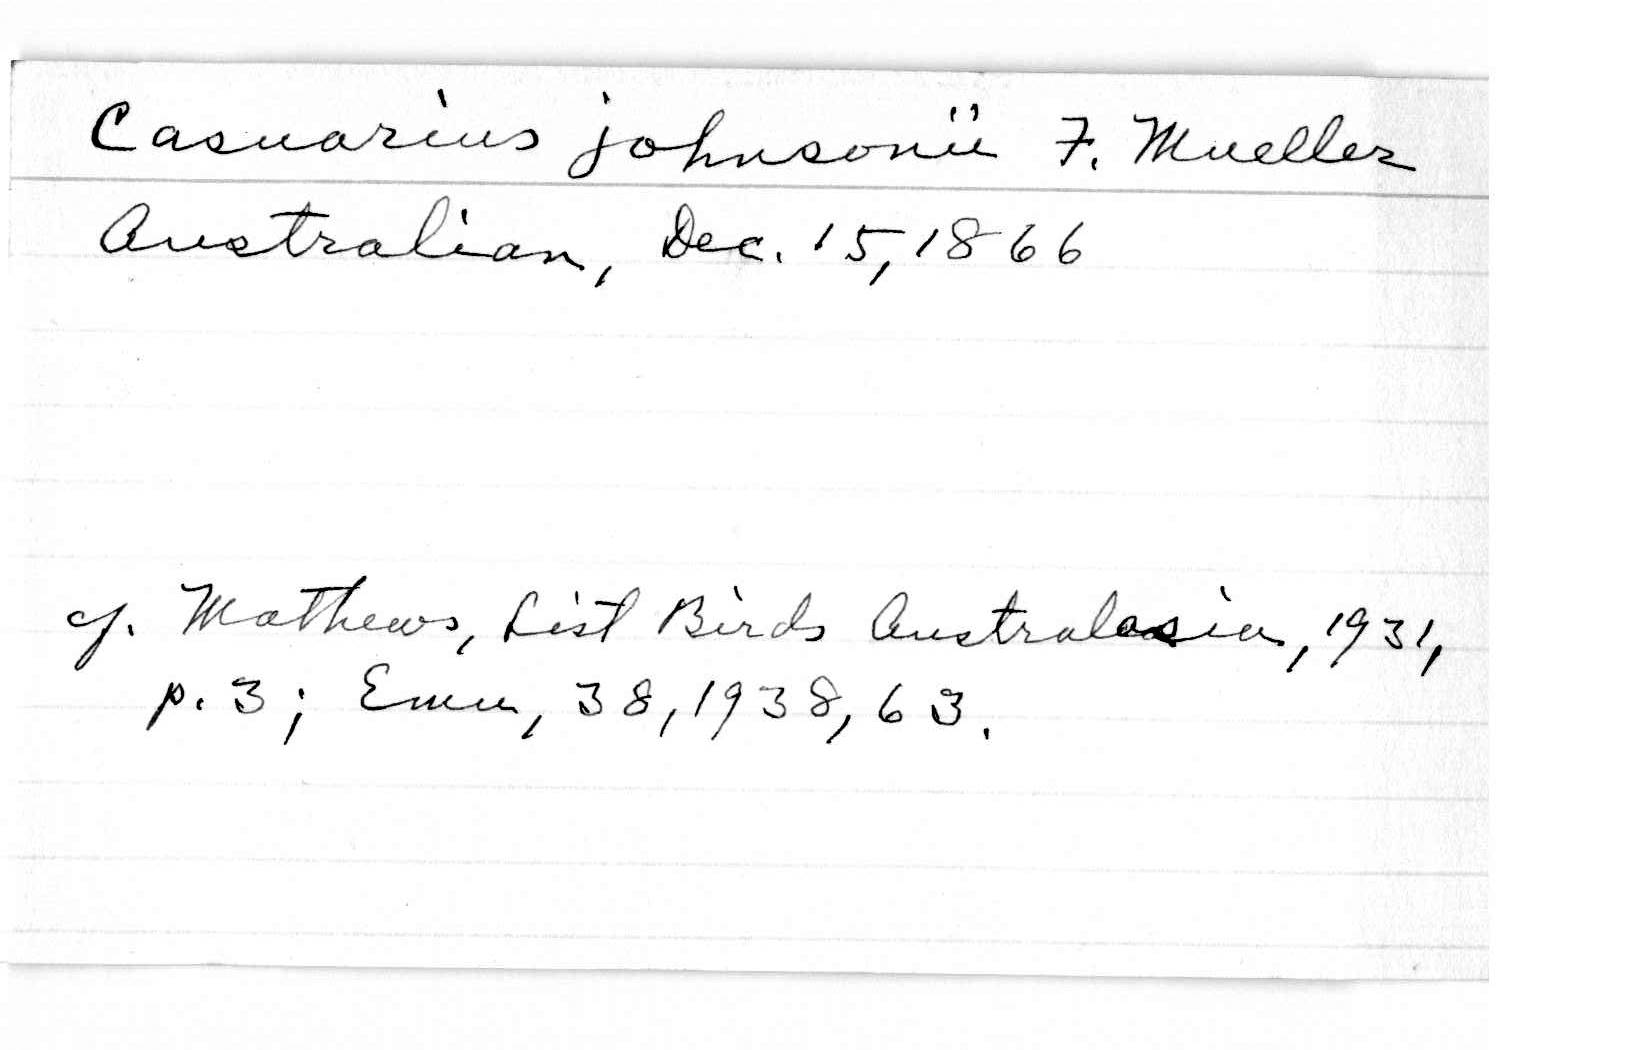 Casuarius johnsonii F. Mueller
Australian, Dec. 15, 1866
cf. Mathews, List Birds Australasia, 1931,
p. 3; Emu, 38, 1938, 63.